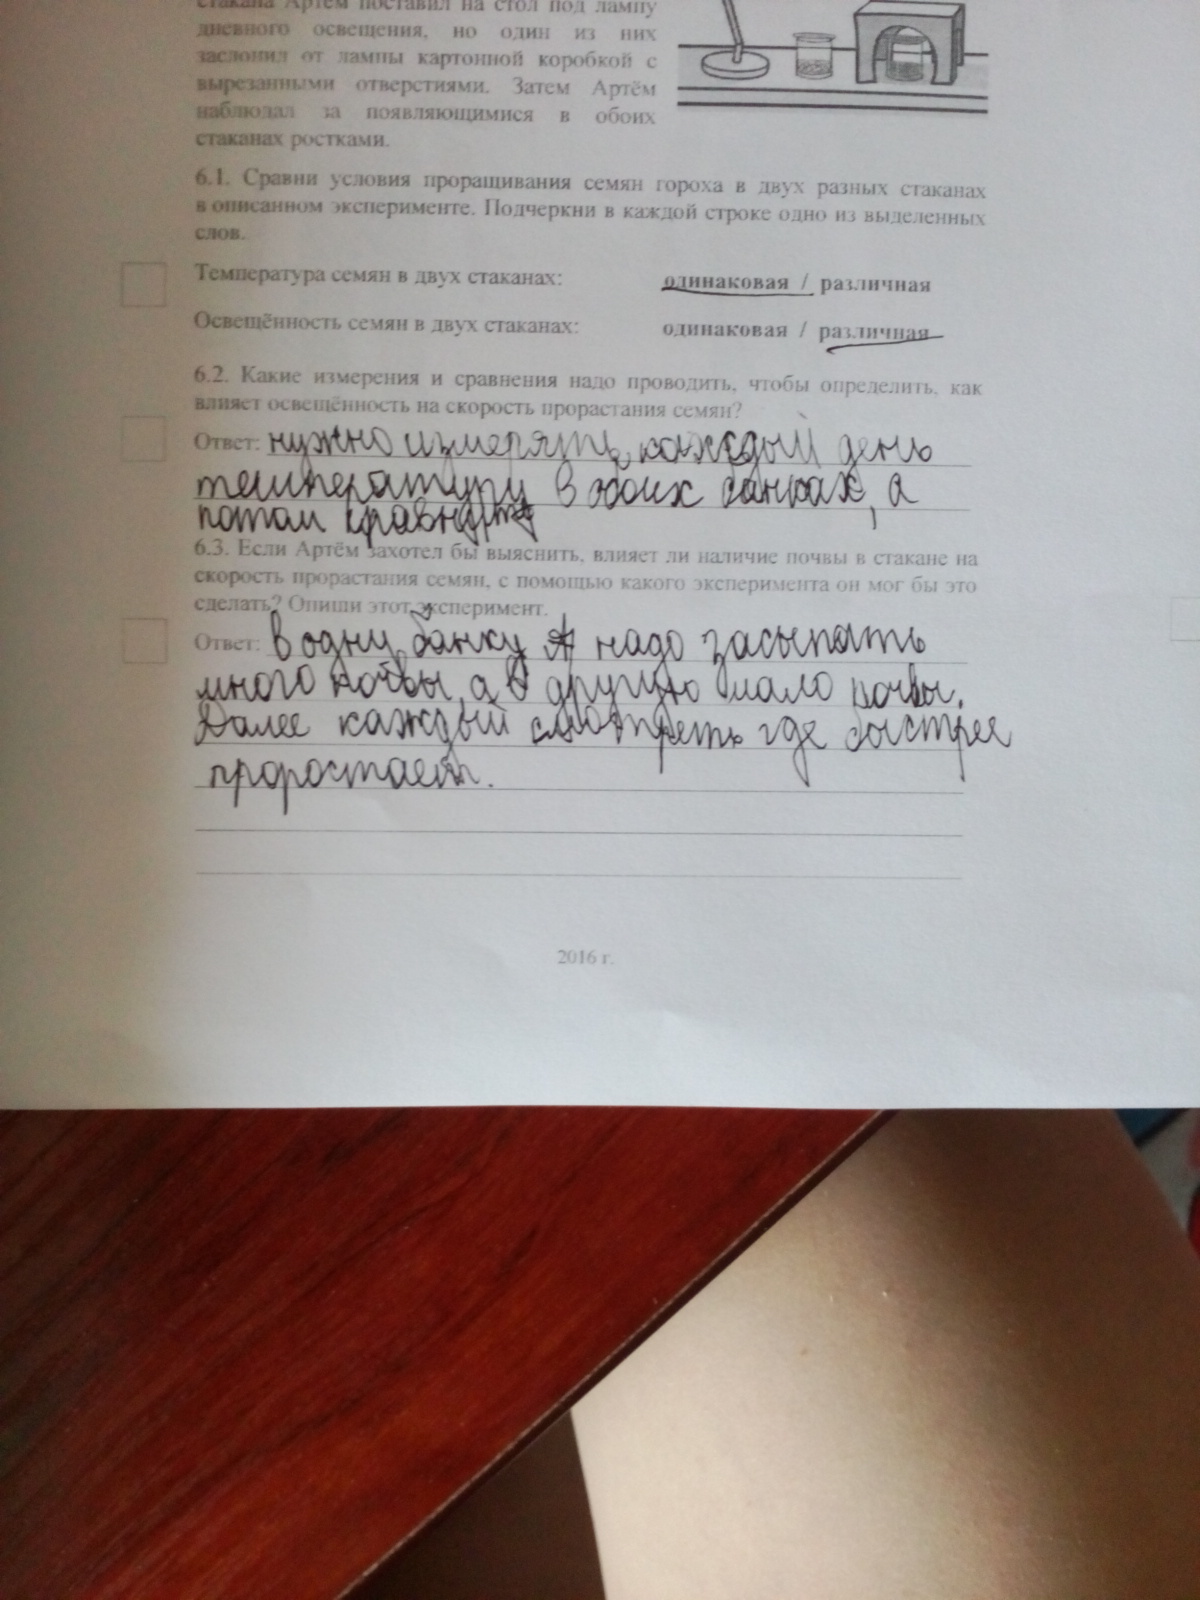 стакана Артём поставил на стол под лампу
дневного освещения, но один из них
заслонил от лампы картонной коробкой с
вырезанными отверстиями. Затем Артём
наблюдал за появляющимися в обоих
стаканах ростками.
6.1. Сравни условия проращивания семян гороха в двух разных стаканах
в описанном эксперименте. Подчеркни в каждой строке одно из выделенных
слов.
Температура семян в двух стаканах: одинаковая / различная
Освещённость семян в двух стаканах: одинаковая / различная
6.2. Какие измерения и сравнения надо проводить, чтобы определить, как
влияет освещённость на скорость прорастания семян?
Ответ: нужно измерять каждый день
температуру в обоих банках, а
потом
6.3. Если Артём захотел бы выяснить, влияет ли наличие почвы в стакане на
скорость прорастания семян, с помощью какого эксперимента он мог бы это
сделать? Опиши этот эксперимент.
Ответ: в одну банку надо засыпать
много почвы, а в другую мало почвы.
Далее каждый смотреть где быстрее
проростает.
2016 г.